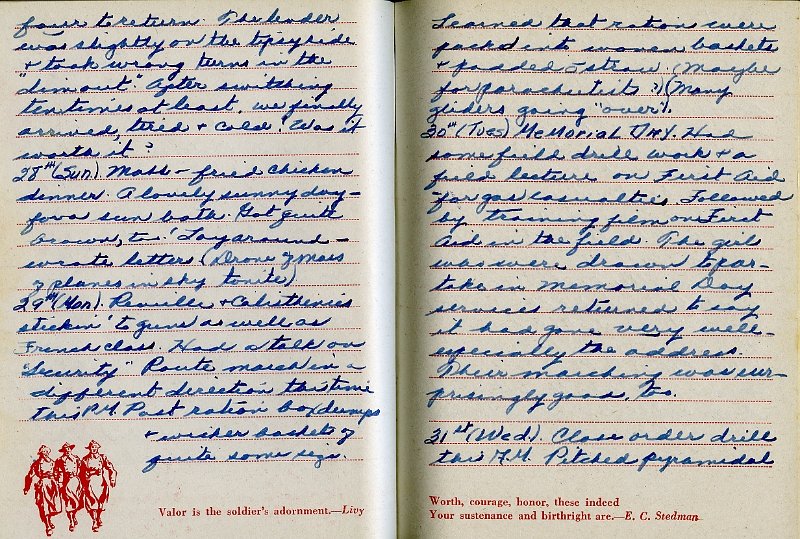 four to return. The leader
was slightly on the tipsy side
& took wrong turns in the
"dimout". After switching
ten times at least, we finally
arrived, tired & cold! Was it
worth it?
28th (Sun). Mass - fried chicken
dinner. A lovely sunny day -
for a sun bath. Got quite
brown, too! Lay around -
wrote letters (Drone of mass
of planes in sky tonite)
29th (Mon). Reveille & Calisthenics
stickin' to guns as well as
French class. Had a talk on
"Security" Route march in a
different direction this time
this P.M. Past ration box dumps
& wicker baskets of
quite some size.
Valor is the soldier's adornment.—Livy
Learned that ration were
packed into woven baskets
& padded c straw. (Maybe
for parachutists?) (Many
gliders going "over").
30th (Tues) Memorial DAY. Had
some field drill work & a
field lecture on First Aid
for gas casualties. Followed
by training film on First
Aid in the field. The girls
who were drawn to par-
take in Memorial Day
services returned to say
it had gone very well -
especially the address.
Their marching was sur-
prisingly good, too.
31st (Wed). Close order drill
this A.M. Pitched pyramidal
Worth, courage, honor, these indeed
Your sustenance and birthright are.—E. C. Stedman